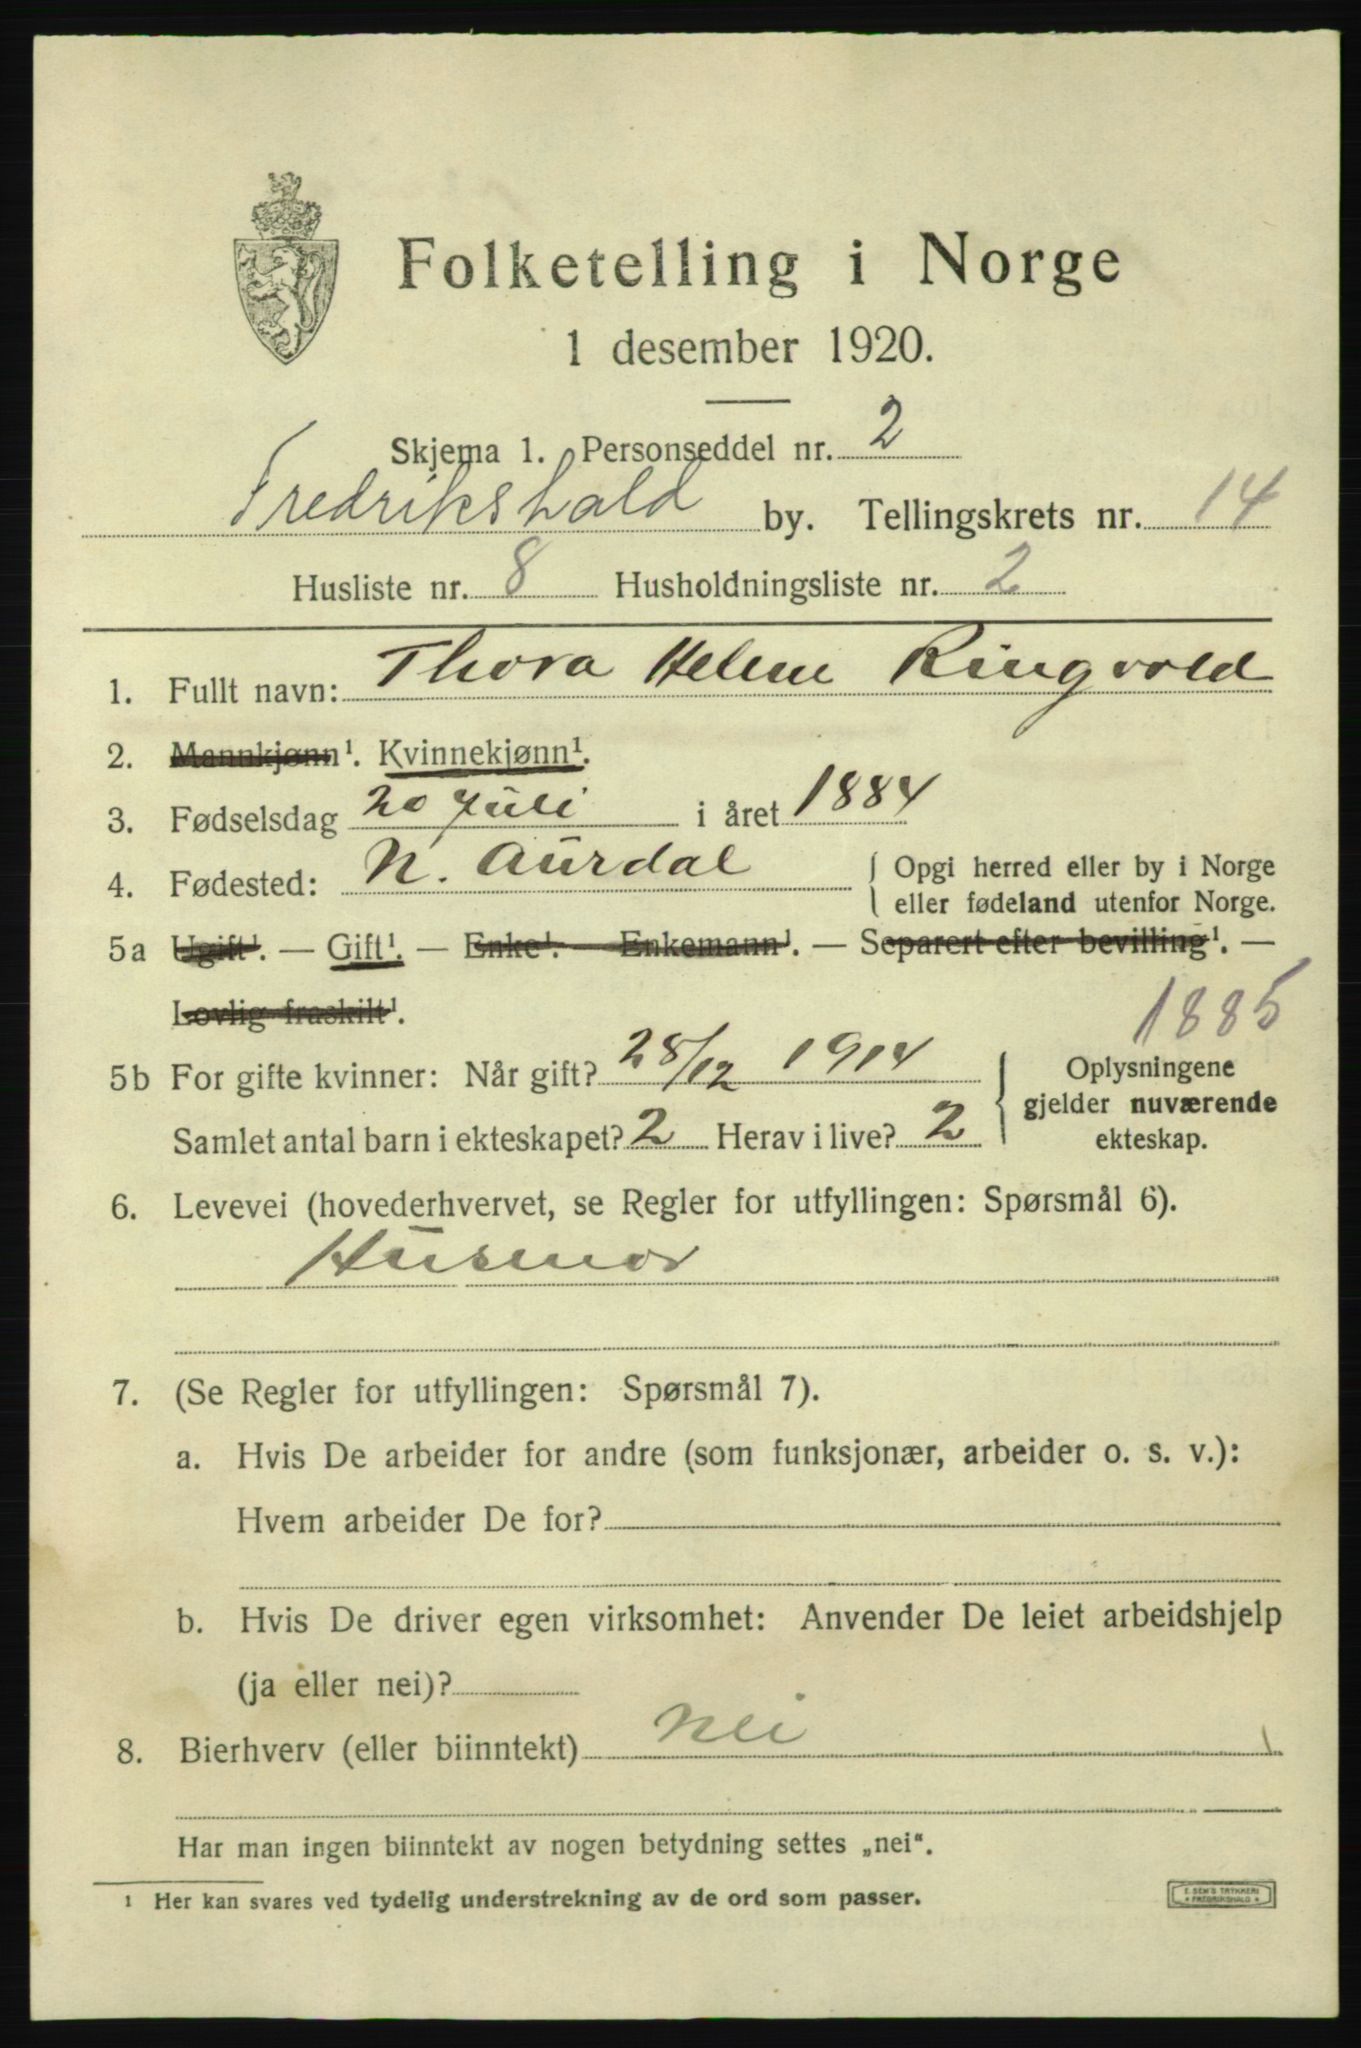 Folketelling i Norge
1 desember 1920.
Skjema 1. Personseddel nr. 2
Fredrikshald by. Tellingskrets nr. 14
Husliste nr. 8 Husholdningsliste nr. 2
1. Fullt navn: Thora Helene Ringvold
2. Mannkjønn¹. Kvinnekjønn¹.
3. Fødselsdag 20 Juli i året 1884
4. Fødested: N. Aurdal { Opgi herred eller by i Norge
eller fødeland utenfor Norge.
5a Ugift¹. — Gift¹. — Enke¹. — Enkemann¹. — Separert efter bevilling¹. —
Lovlig fraskilt¹.
1885
5b For gifte kvinner: Når gift? 28/12 1914
Samlet antal barn i ekteskapet? 2 Herav i live? 2
Oplysningene
gjelder nuværende
ekteskap.
6. Levevei (hovederhvervet, se Regler for utfyllingen: Spørsmål 6).
Husmor
7. (Se Regler for utfyllingen: Spørsmål 7).
a. Hvis De arbeider for andre (som funksjonær, arbeider o. s. v.):
Hvem arbeider De for?
b. Hvis De driver egen virksomhet: Anvender De leiet arbeidshjelp
(ja eller nei)?
8. Bierhverv (eller biinntekt) Nei
Har man ingen biinntekt av nogen betydning settes „nei“.
¹ Her kan svares ved tydelig understrekning av de ord som passer.
E. SEM'S TRYKKERI
* FREDRIKSHALD *